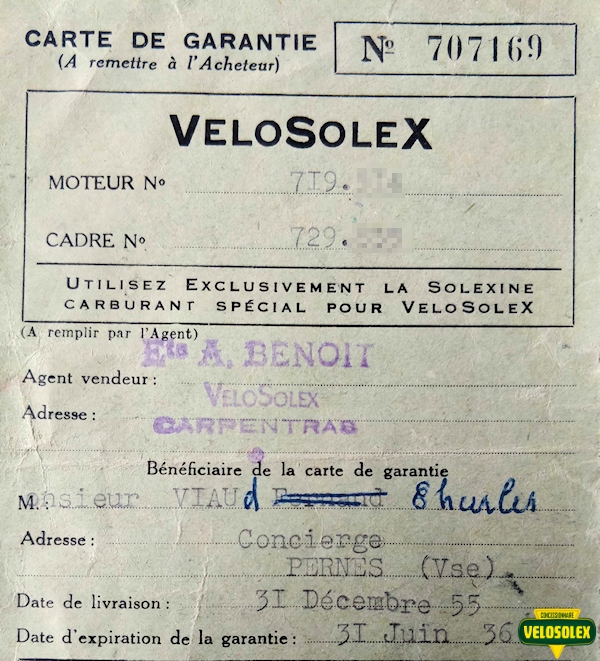 CARTE DE GARANTIE
(A remettre à l'Acheteur)
Nº 707169
VELOSOLEX
MOTEUR Nº 7I9.
CADRE Nº 729.
UTILISEZ EXCLUSIVEMENT LA SOLEXINE
CARBURANT SPÉCIAL POUR VELOSOLEX
(A remplir par l'Agent)
Ets A. BENOIT
Agent vendeur :
VELOSOLEX
Adresse :
CARPENTRAS
Bénéficiaire de la carte de garantie
Monsieur VIAUd Fernand Charles
Adresse : Concierge
PERNES (Vse)
Date de livraison : 3I Décembre 55
Date d'expiration de la garantie : 3I Juin 36
CONCESSIONNAIRE
VELOSOLEX